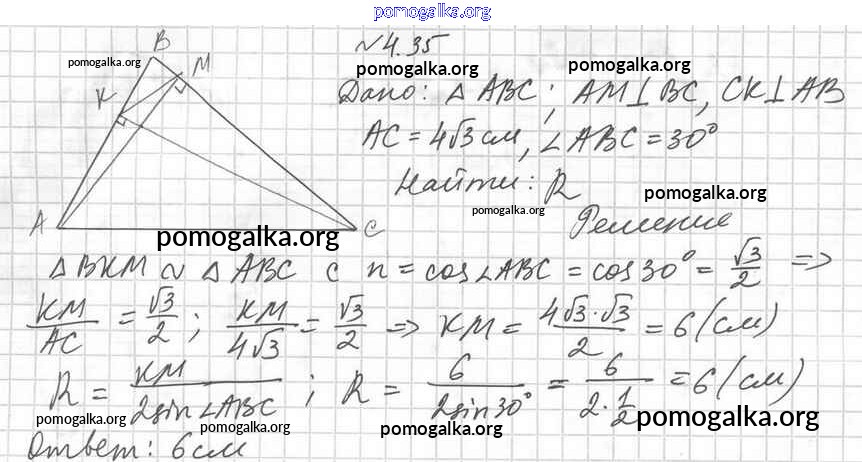 pomogalka.org
№ 4.35
pomogalka.org pomogalka.org pomogalka.org
B
M
K
A
C
Дано: △ ABC; AM⊥BC, CK⊥AB
AC = 4√3 см, ∠ABC = 30°
Найти: R
pomogalka.org pomogalka.org
pomogalka.org
Решение
△ BKM ~ △ ABC с k = cos∠ABC = cos30° = √3/2 =>
KM/AC = √3/2; KM/4√3 = √3/2 => KM = 4√3·√3/2 = 6 (см)
R = KM/2sin∠ABC; R = 6/2sin30° = 6/2·1/2 = 6 (см)
pomogalka.org pomogalka.org pomogalka.org pomogalka.org
Ответ: 6 см